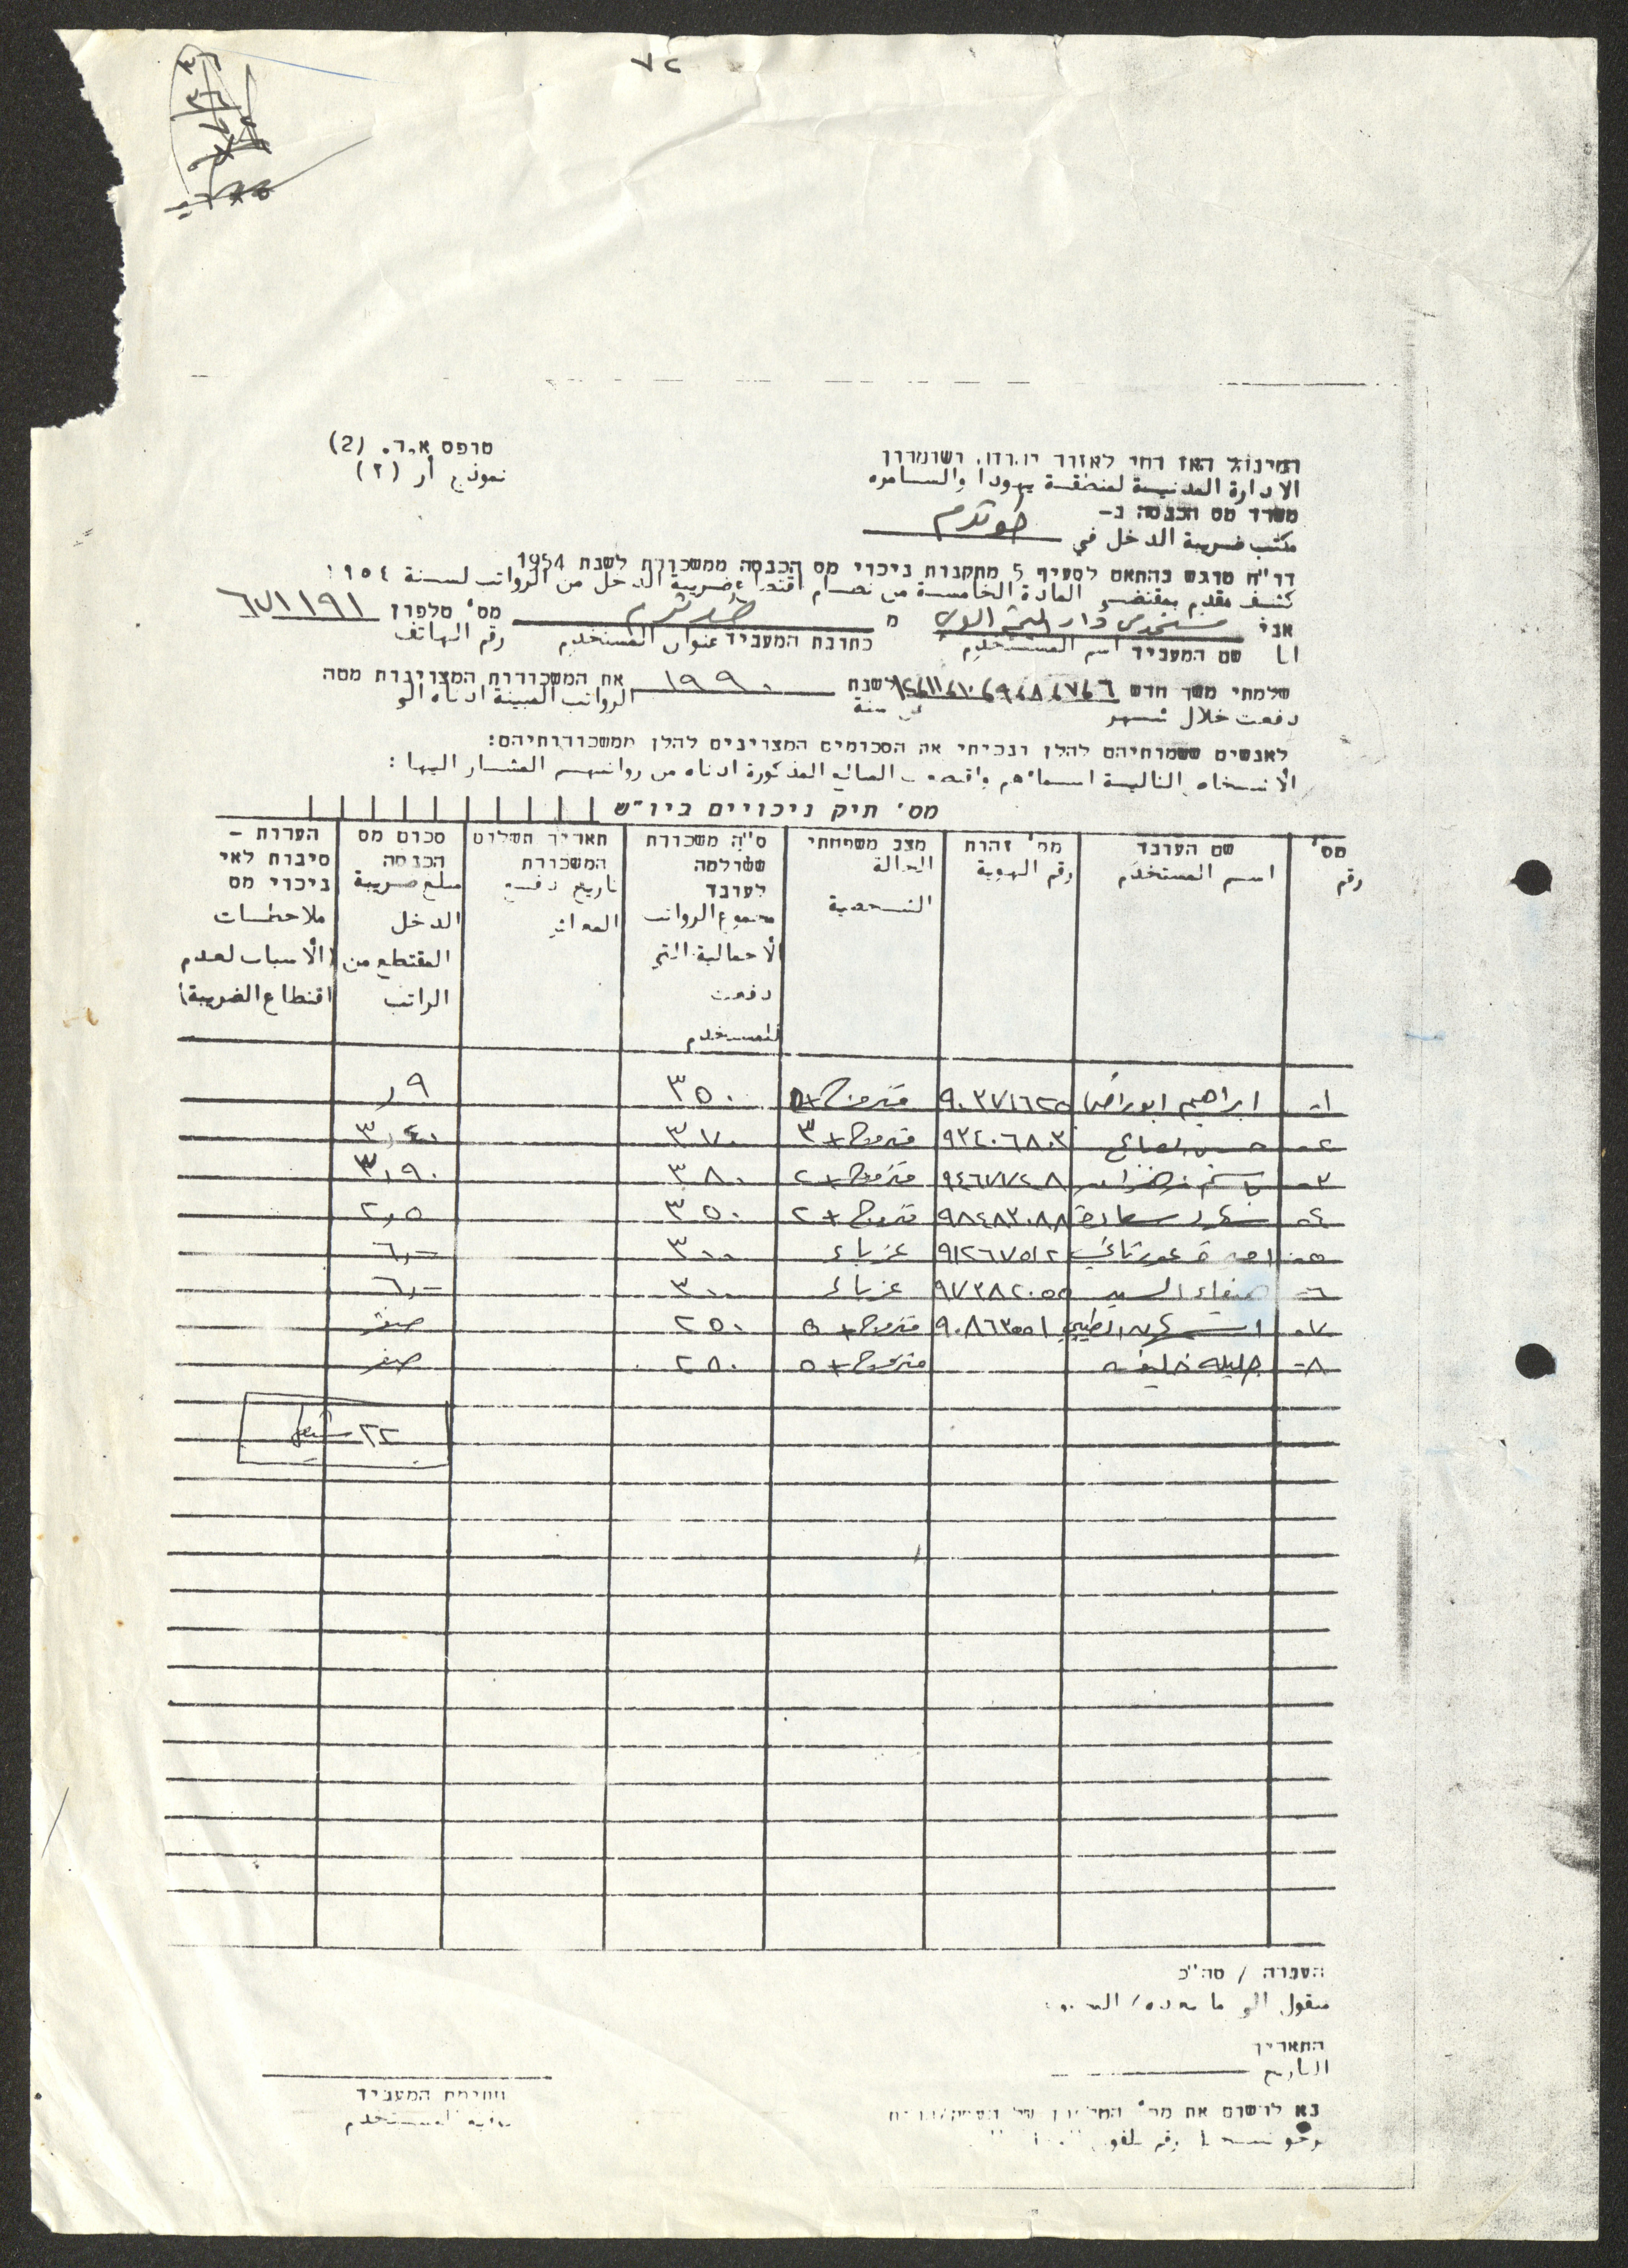 ٧٢
טופס א.ר. (2)
نموذج أر (٢)
המינהל האזרחי לאזור יהודה ושומרון
الادارة المدنية لمنطقة يهودا والسامره
משרד מס הכנסה ב-
مكتب ضريبة الدخل في طولكرم
דו"ח מוגש בהתאם לסעיף 5 מתקנות ניכוי מס הכנסה ממשכורת לשנת 1954
كشف مقدم بمقتضى المادة الخامسة من نظام اقتطاع ضريبة الدخل من الرواتب لسنة ١٩٥٤
אני مستخدمي دار اليتيم العربي מ طولكرم מס' טלפון ٦٧١١٩١
انا שם המעביד اسم المستخدم כתובת המעביד عنوان المستخدم رقم الهاتف
שלמתי משך חדש ٦،٧،٨،٩،١٠،١١،١٢ לשנת ١٩٩٠ את המשכורות המצויינות מטה
دفعت خلال شهر من سنة الرواتب المبينة ادناه الى
לאנשים ששמותיהם להלן וניכיתי את הסכומים המצויינים להלן ממשכורותיהם:
الأشخاص التالية اسماؤهم واقتطعت المبالغ المذكورة ادناه من رواتبهم المشار اليها :
מס' תיק ניכויים ביו"ש
מס' رقم
שם העובד اسم المستخدم
מס' זהות رقم الهوية
מצב משפחתי الحالة الشخصية
ס"ה משכורת ששולמה לעובד مجموع الرواتب الأجمالية التي دفعت للمستخدم
תאריך תשלום המשכורת تاريخ دفع المعاش
סכום מס הכנסה مبلغ ضريبة الدخل المقتطع من الراتب
הערות - סיבות לאי ניכוי מס ملاحظات (الأسباب لعدم اقتطاع الضريبة)
١- ابراهيم ابو راضي ٩٠٣٧١٦٢٥ متزوج+٥ ٣٥٠ ٩ر
٢- حسن الصباغ ٩٢٤٠٦٨٠٣ متزوج+٣ ٣٧٠ ٣,٤٠
٣- باسم ٩٤٦٧٧٢٨ متزوج+٢ ٣٨٠ ٣,٩٠
٤- سعادة ٩٨٤٨٣٠٨٨ متزوج+٢ ٣٥٠ ٢,٥
٥- ٩١٢٦٧٥١٢ عزباء ٣٠٠ ٦,-
٦- صفاء السيد ٩٧٣٨٢٠٥٥ عزباء ٣٠٠ ٦,-
٧- الطيبي ٩٠٨٦٣٥٥١ متزوج+٥ ٢٥٠ صفر
٨- جليله خليفه متزوج+٥ ٢٨٠ صفر
٢٢ شيقل
העברה / סה"כ
منقول الى ما بعده/ المجموع
התאריך
التاريخ
חתימת המעביד
توقيع المستخدم
נא לרשום את מס' הטלפון של